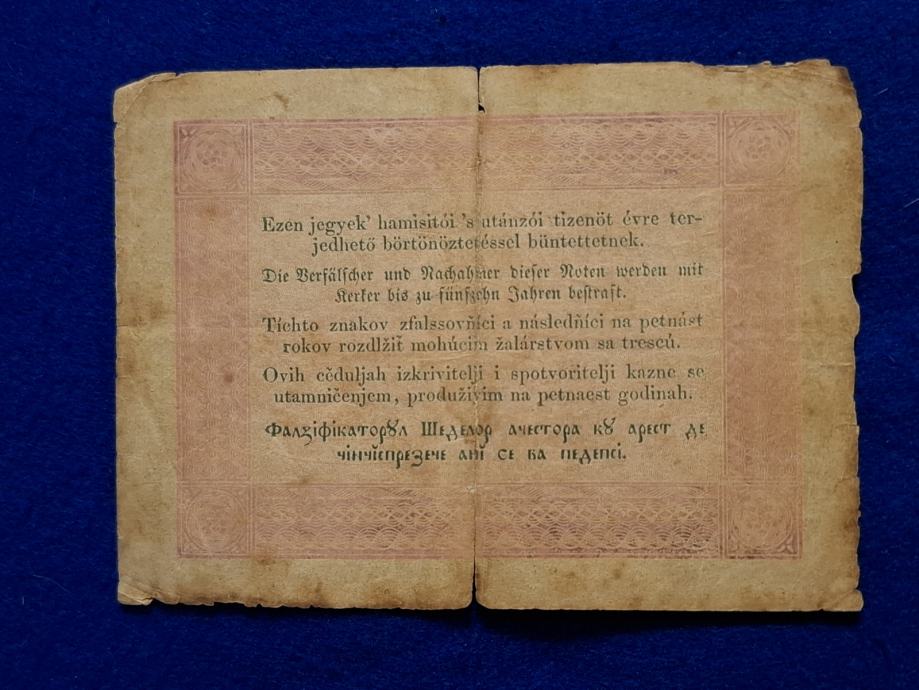 Ezen jegyek' hamisitói 's utánzói tizenöt évre ter-
jedhető börtönöztetéssel büntettetnek.
Die Verfälscher und Nachahmer dieser Noten werden mit
Kerker bis zu fünfzehn Jahren bestraft.
Tíchto znakov zfalssovňíci a následňíci na petnást
rokov rozdlžiť mohúcim žalárstvom sa trescú.
Ovih cěduljah izkrivitelji i spotvoritelji kazne se
utamničenjem, produživim na petnaest godinah.
Фалзіфікаторꙋл Шеделор ачестора кꙋ арест де
чінчіспрезече анї се ва педепсі.